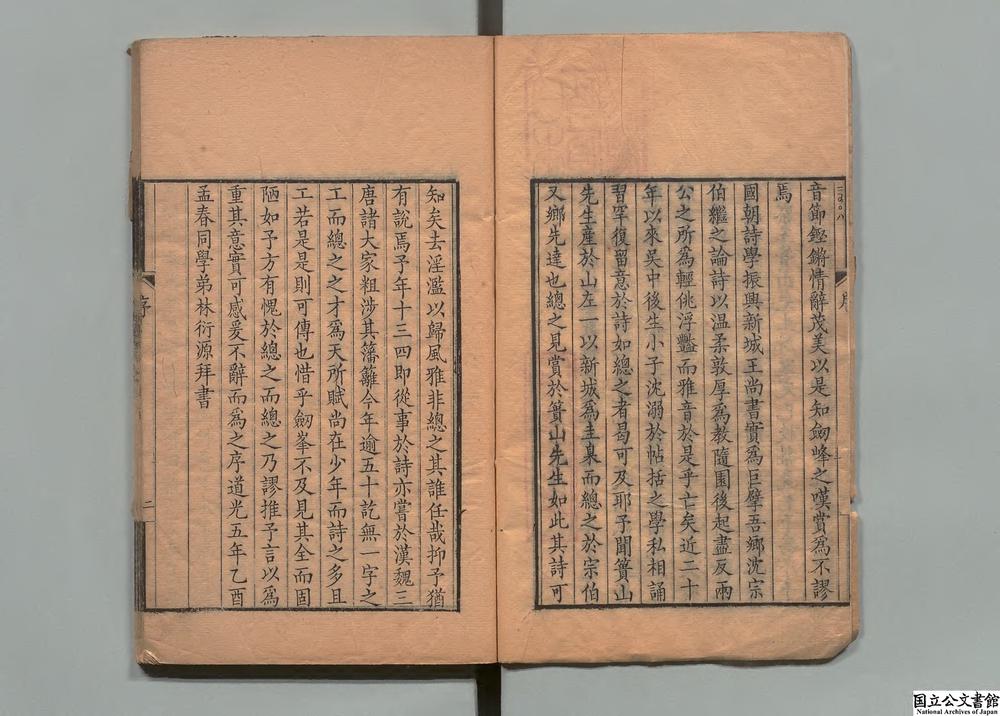 音節鏗鏘情辭茂美以是知劒峰之嘆賞爲不謬
焉
國朝詩學振興新城王尚書實爲巨擘吾鄉沈宗
伯繼之論詩以温柔敦厚爲教隨園後起盡反兩
公之所爲輕佻浮豔而雅音於是乎亡矣近二十
年以來吳中後生小子沈溺於帖括之學私相誦
習罕復留意於詩如總之者曷可及耶予聞簣山
先生產於山左一以新城爲圭臬而總之於宗伯
又鄉先達也總之見賞於簣山先生如此其詩可
序
知矣去淫濫以歸風雅非總之其誰任哉抑予猶
有說焉予年十三四即從事於詩亦嘗於漢魏三
唐諸大家粗涉其藩籬今年逾五十訖無一字之
工而總之之才爲天所賦尚在少年而詩之多且
工若是是則可傳也惜乎劒峯不及見其全而固
陋如予方有愧於總之而總之乃謬推予言以爲
重其意實可感爰不辭而爲之序道光五年乙酉
孟春同學弟林衍源拜書
序
二
国立公文書館
National Archives of Japan